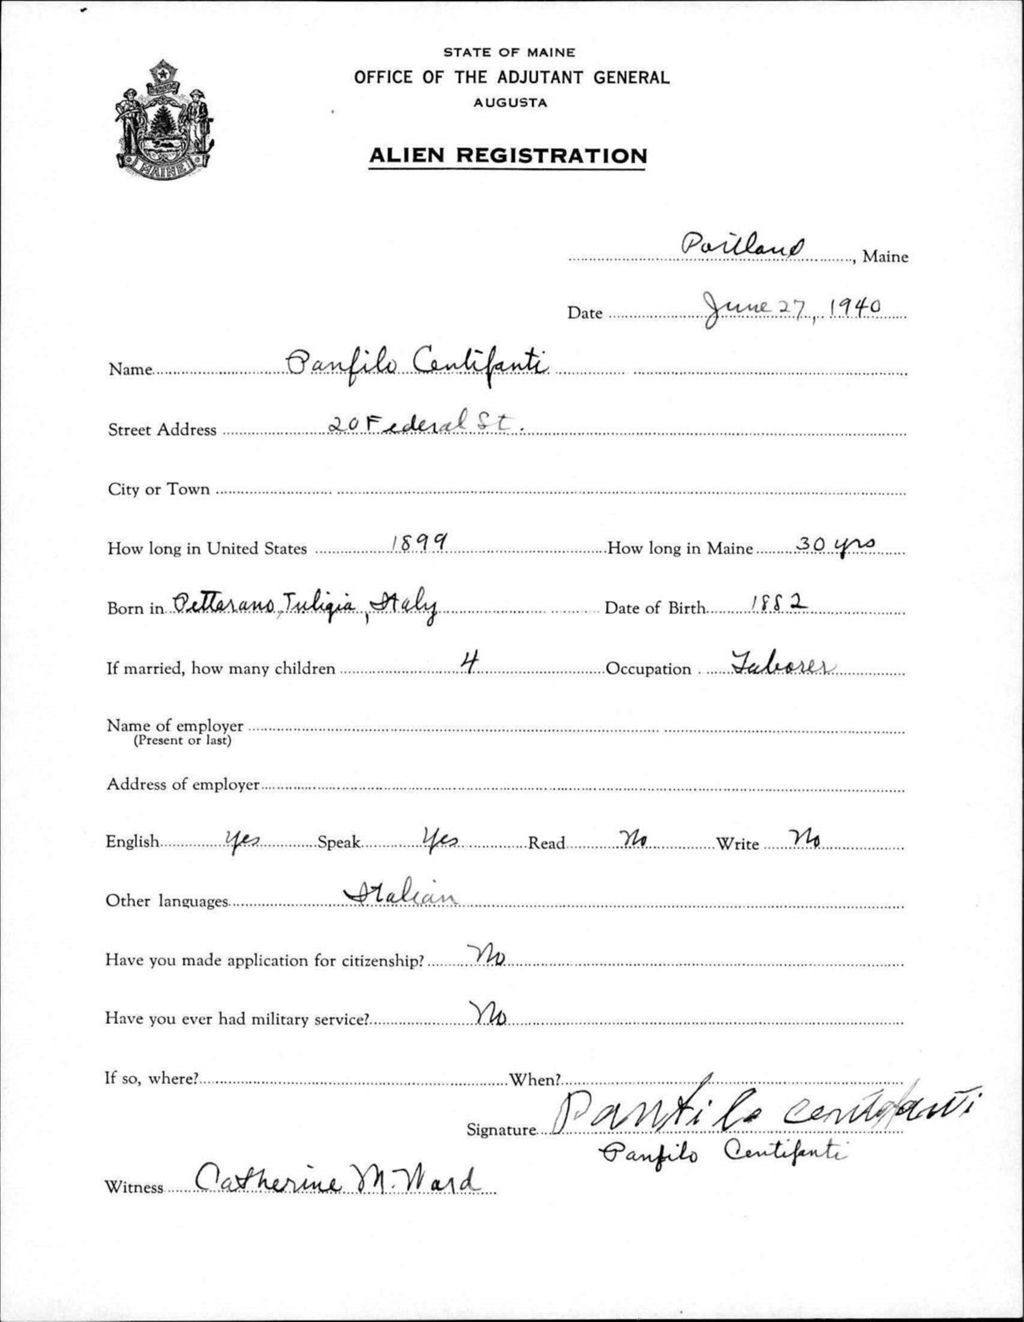 STATE OF MAINE
OFFICE OF THE ADJUTANT GENERAL
AUGUSTA
ALIEN REGISTRATION
MAINE
Portland, Maine
Date June 27, 1940
Name Panfilo Centifanti
Street Address 20 Federal St.
City or Town
How long in United States 1899 How long in Maine 30 yrs
Born in Pettarano, Tuligia, Italy Date of Birth 1882
If married, how many children 4 Occupation Laborer
Name of employer
(Present or last)
Address of employer
English Yes Speak Yes Read No Write No
Other languages Italian
Have you made application for citizenship? No
Have you ever had military service? No
If so, where? When?
Signature Panfilo Centifanti
Panfilo Centifanti
Witness Catherine M. Ward